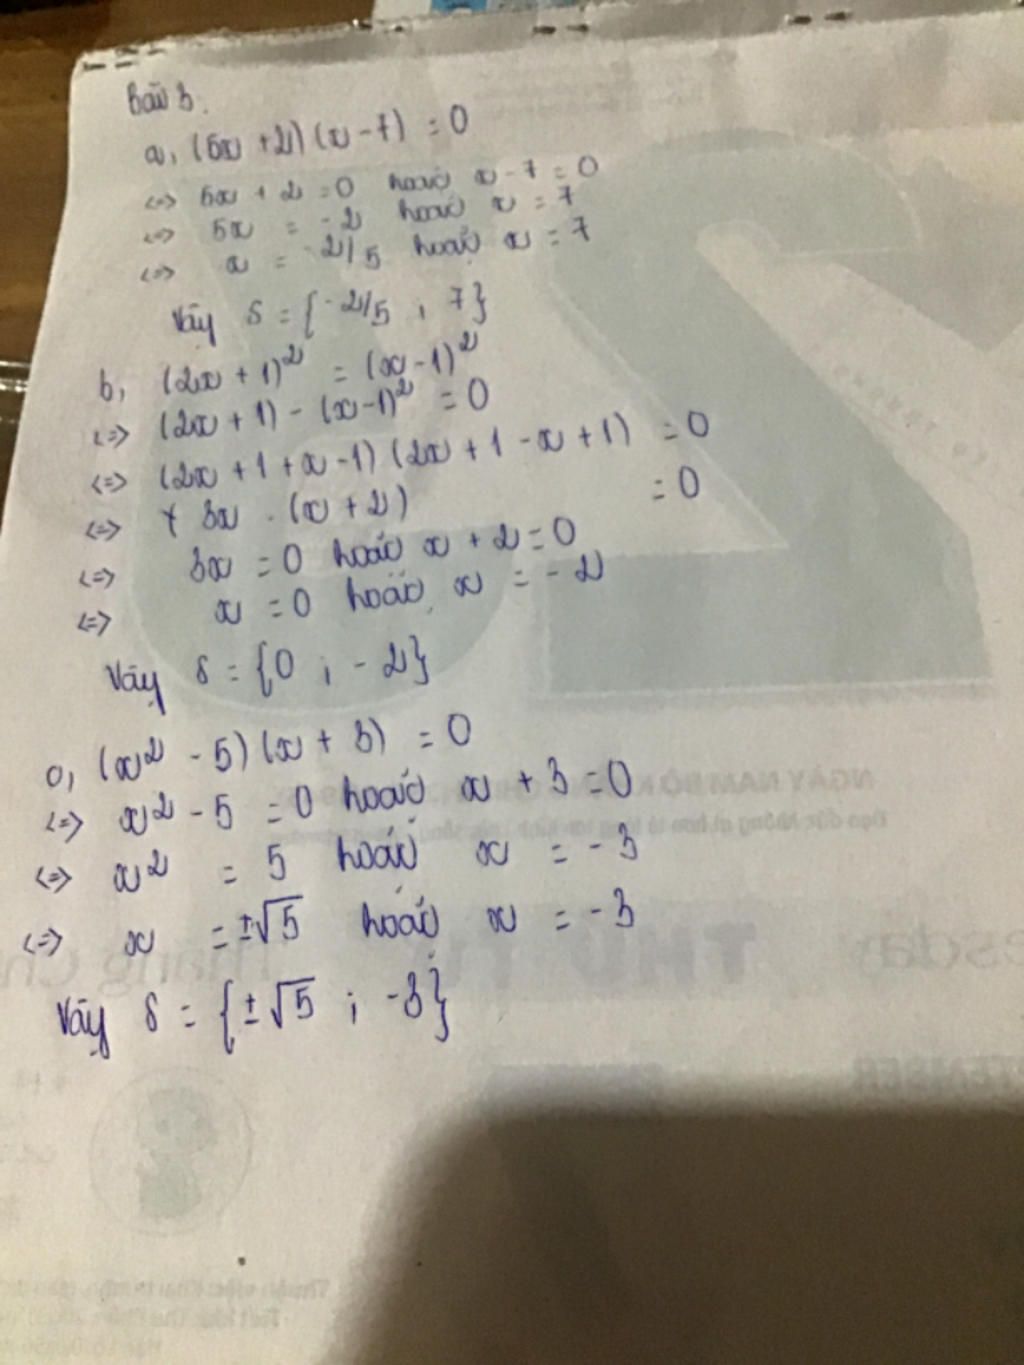 Bài 3.
a, (5x + 2) (x - 7) = 0
<=> 5x + 2 = 0 hoặc x - 7 = 0
<=> 5x = -2 hoặc x = 7
<=> x = -2/5 hoặc x = 7
Vậy S = {-2/5 ; 7}
b, (2x + 1)² = (x - 1)²
<=> (2x + 1) - (x - 1)² = 0
<=> (2x + 1 + x - 1) (2x + 1 - x + 1) = 0
<=> 3x . (x + 2) = 0
<=> 3x = 0 hoặc x + 2 = 0
<=> x = 0 hoặc x = -2
Vậy S = {0 ; -2}
c, (x² - 5) (x + 3) = 0
<=> x² - 5 = 0 hoặc x + 3 = 0
<=> x² = 5 hoặc x = -3
<=> x = ±√5 hoặc x = -3
Vậy S = {±√5 ; -3}
NGÀY NAM BỘ
THỨ TƯ